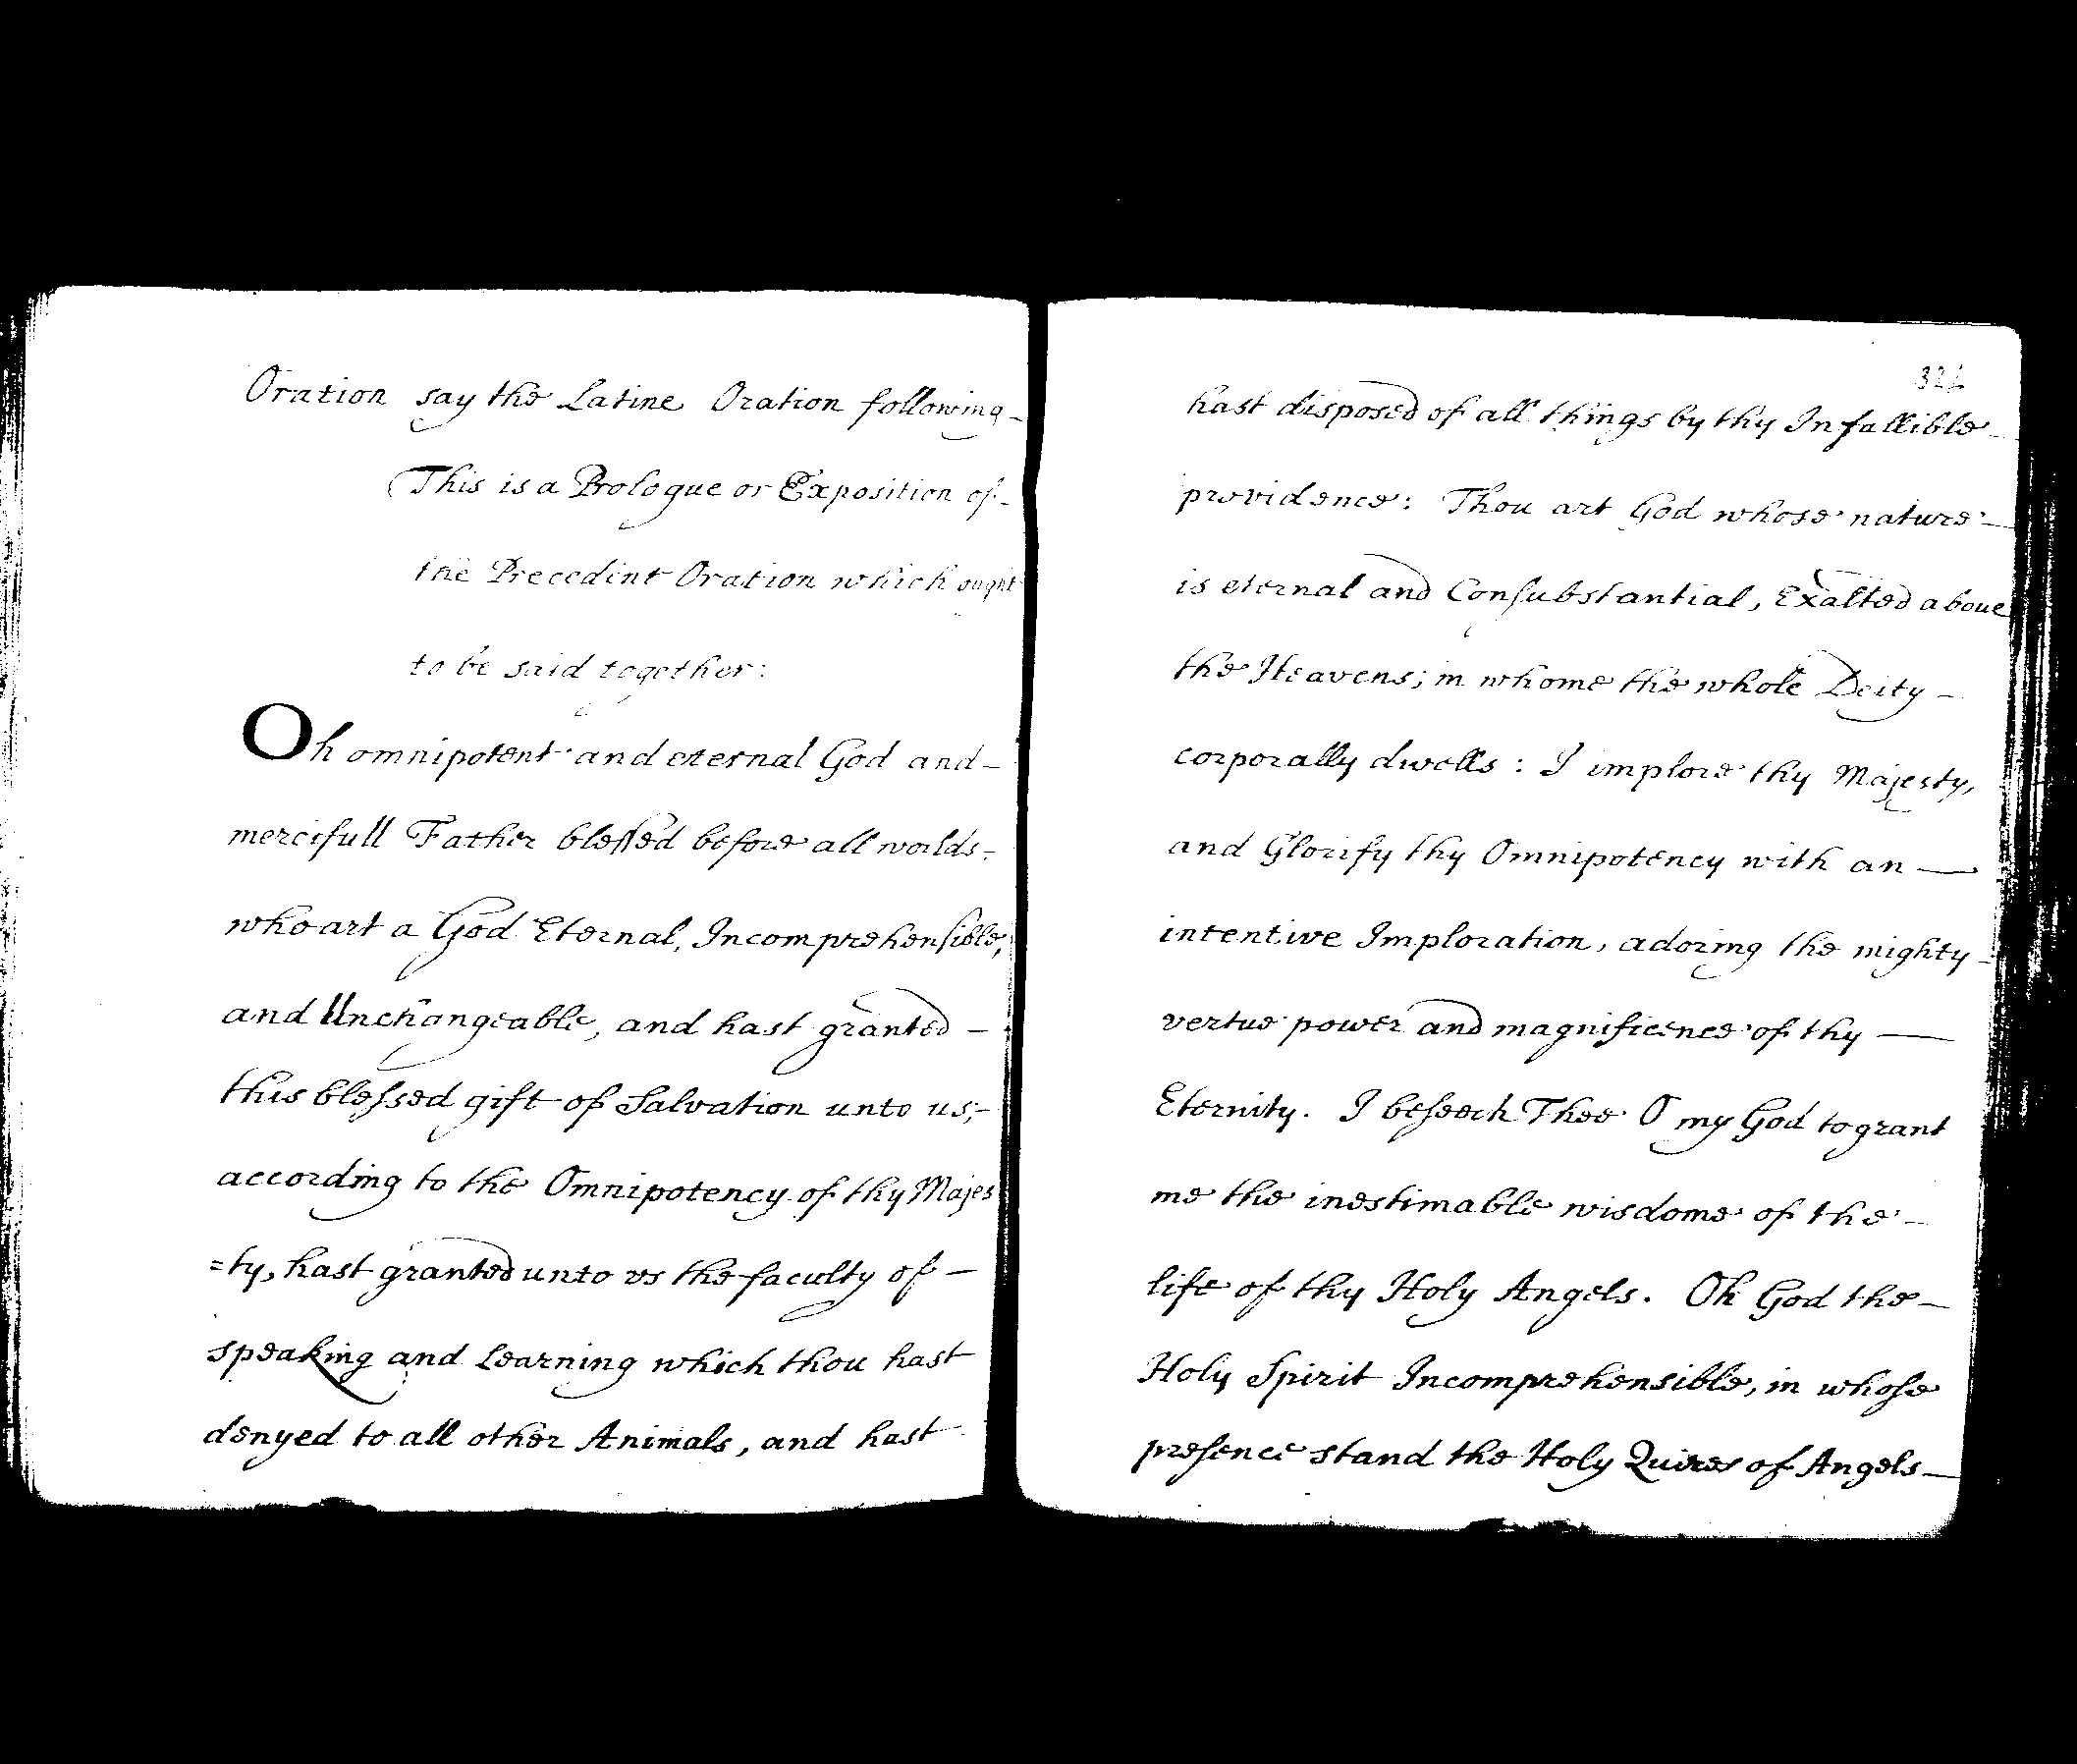 Oration say the Latine Oration following –
This is a Prologue or Exposition of –
the Precedent Oration which ought
to be said together:
Oh omnipotent and eternal God and –
mercifull Father blessed before all worlds –
who art a God Eternal, Incomprehensible,
and Unchangeable, and hast granted –
this blessed gift of Salvation unto us; –
according to the Omnipotency of thy Majes
=ty, hast granted unto vs the faculty of –
speaking and Learning which thou hast
denyed to all other Animals, and hast
hast disposed of all things by thy Infallible –
providence: Thou art God whose nature –
is eternal and Consubstantial, Exalted aboue
the Heavens; in whome the whole Deity –
corporally dwells: I implore thy Majesty,
and Glorify thy Omnipotency with an —
intentive Imploration, adoring the mighty –
vertue power and magnificence of thy —
Eternity. I beseech Thee O my God to grant
me the inestimable wisdome of the –
life of thy Holy Angels. Oh God the –
Holy Spirit Incomprehensible, in whose
presence stand the Holy Quires of Angels –